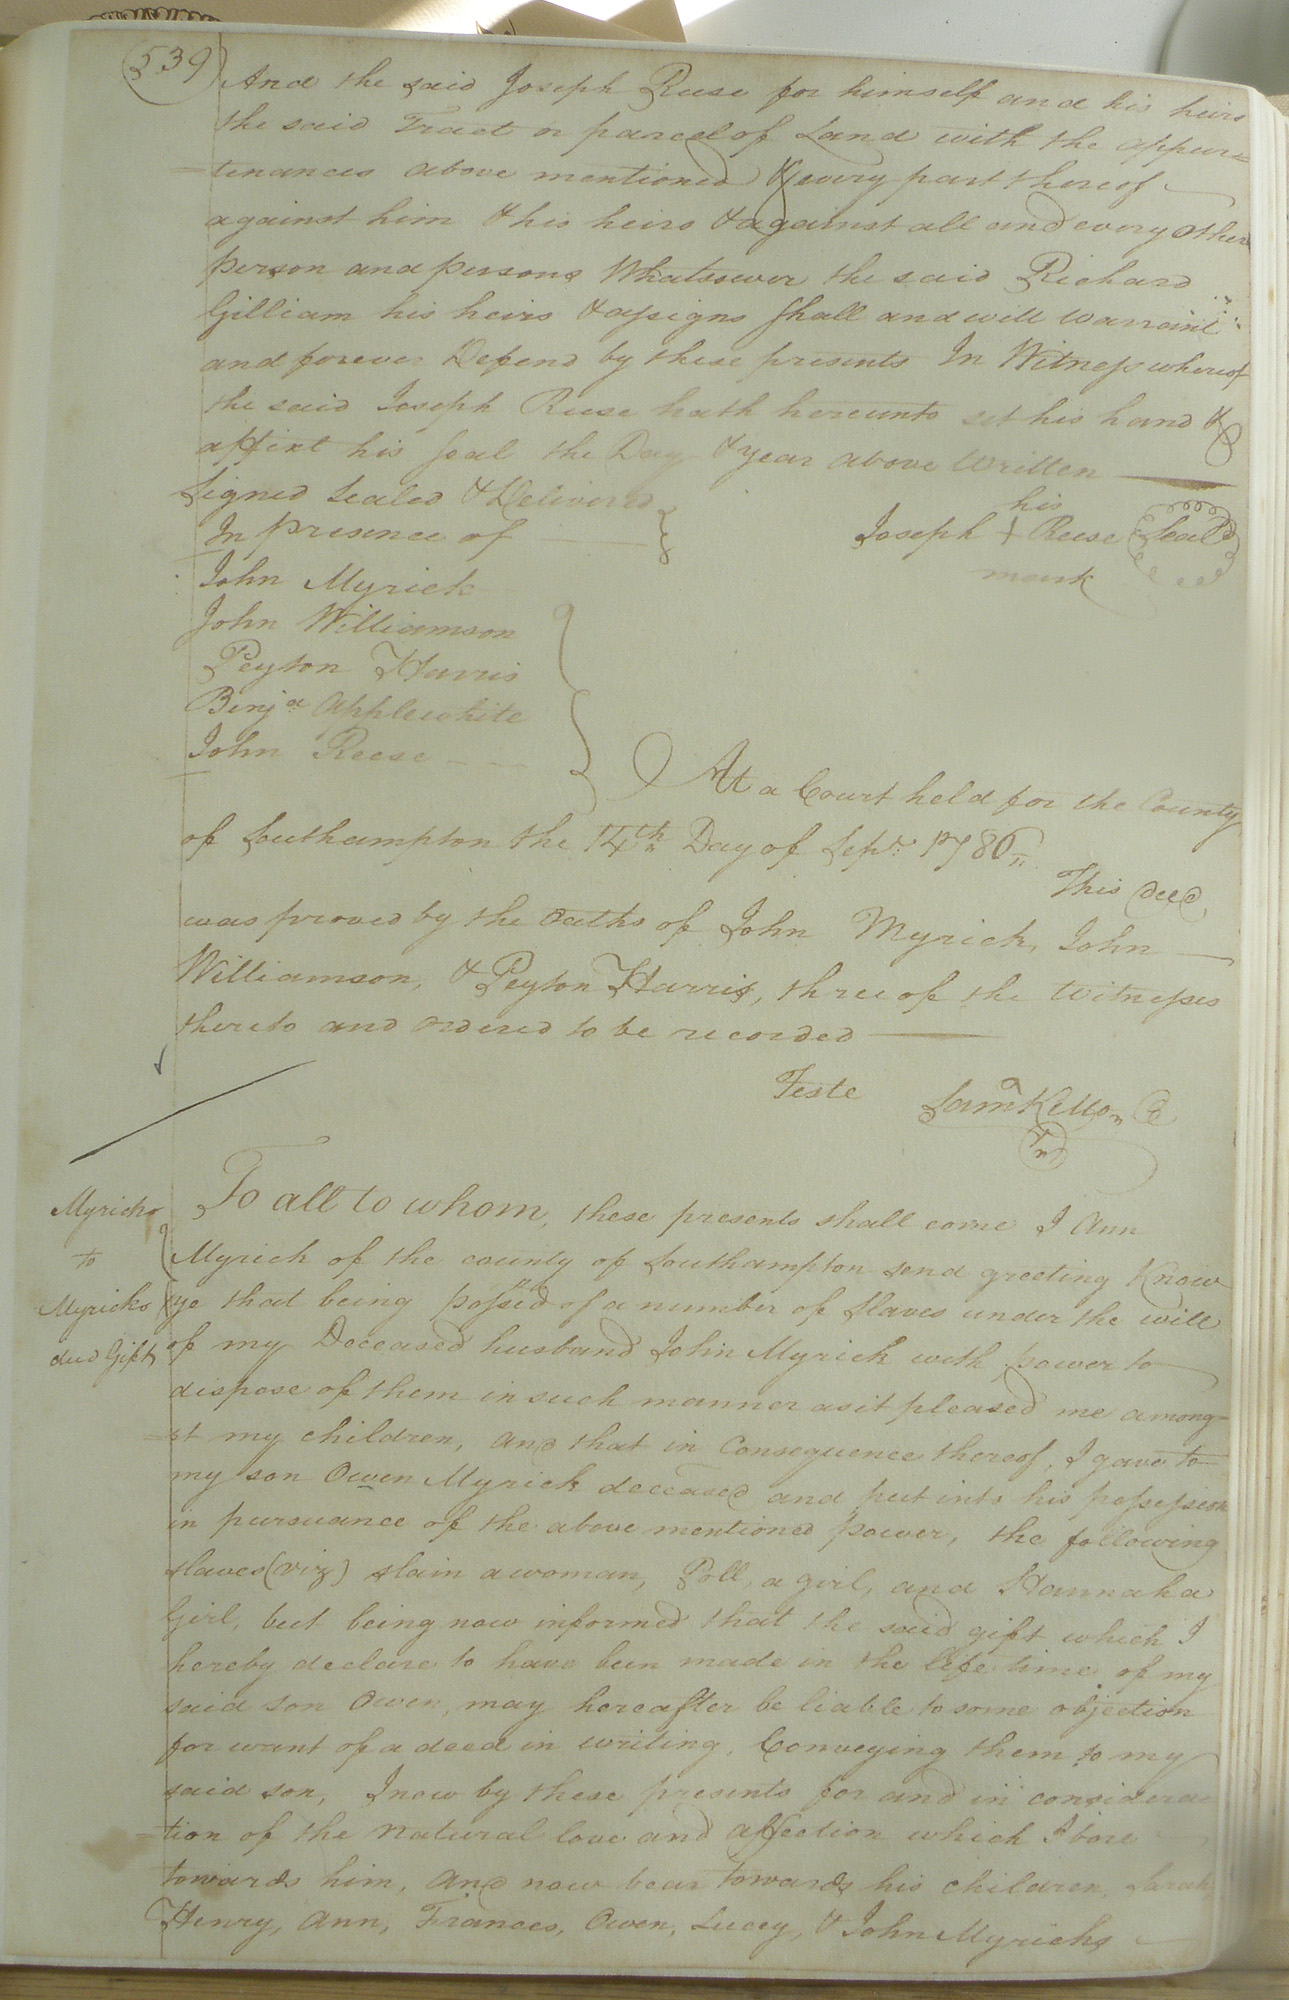 539
And the said Joseph Reese for himself and his heirs
the said Tract or parcel of Land with the appur=
=tenances above mentioned & every part thereof
against him & his heirs & against all and every other
person and persons Whatsoever the said Richard
Gilliam his heirs & assigns shall and will warrant
and forever Defend by these presents In Witness whereof
the said Joseph Reese hath hereunto set his hand &
affixt his seal the Day & year above Written
Signed Sealed & Delivered
In presence of
his
Joseph + Reese Seal
mark
John Myrick
John Williamson
Peyton Harris
Benja Applewhite
John Reese
At a Court held for the County
of Southampton the 14th Day of Sepr. 1786
This deed
was proved by the oaths of John Myrick, John
Williamson, & Peyton Harris, three of the Witnesses
thereto and ordered to be recorded
Teste Sama Kello
Myricks
to
Myricks
deed Gift
To all to whom, these presents shall come I Ann
Myrick of the county of Southampton send greeting Know
ye that being possed of a number of slaves under the will
of my Deceased husband John Myrick with power to
dispose of them in such manner as it pleased me among=
=st my children, and that in Consequence thereof, I gave to
my son Owen Myrick deceased and put into his possession
in pursuance of the above mentioned power, the following
slaves (viz) slain a woman, Poll, a girl, and Hannah a
Girl, but being now informed that the said gift which I
hereby declare to have been made in the life time of my
said son Owen, may hereafter be liable to some objection
for want of a deed in writing, Conveying them to my
said son, I now by these presents for and in considera
=tion of the natural love and affection which I bore
towards him, and now bear towards his children, Sarah,
Henry, Ann, Frances, Owen, Lucey, & John Myricks